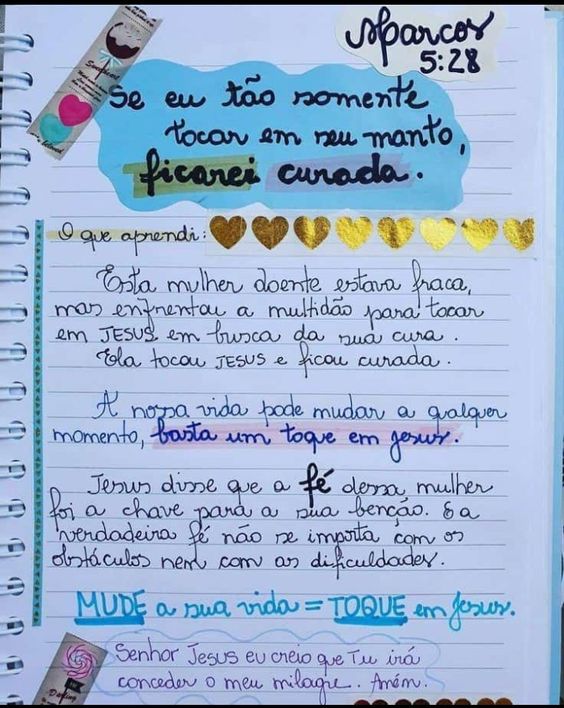 Marcos
5:28
Se eu tão somente
tocar em seu manto,
ficarei curada.
O que aprendi:
Esta mulher doente estava fraca,
mas enfrentou a multidão para tocar
em JESUS em busca da sua cura.
Ela tocou JESUS e ficou curada.
A nossa vida pode mudar a qalquer
momento, basta um toque em Jesus.
Jesus disse que a fé dessa mulher
foi a chave para a sua benção. E a
verdadeira fé não se importa com os
obstáculos nem com as dificuldades.
MUDE a sua vida = TOQUE em Jesus.
Senhor Jesus eu creio que Tu irá
conceder o meu milagre. Amém.